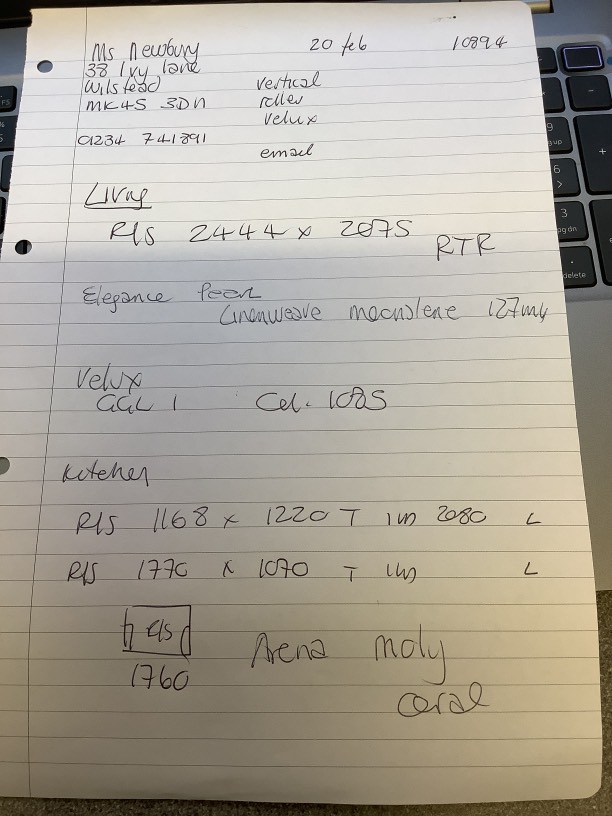 Ms Newbury 20 feb 10894
38 Ivy lane
Wilstead vertical
MK45 3DN roller
velux
01234 741891
email
Living
R/S 2444 x 2075 RTR
Elegance Pearl
Linenweave 127mm
Velux
GGL 1 Col. 1085
Kitchen
R/S 1168 x 1220 T 2080 L
R/S 1770 x 1070 T L
1760
Arena moly
coral